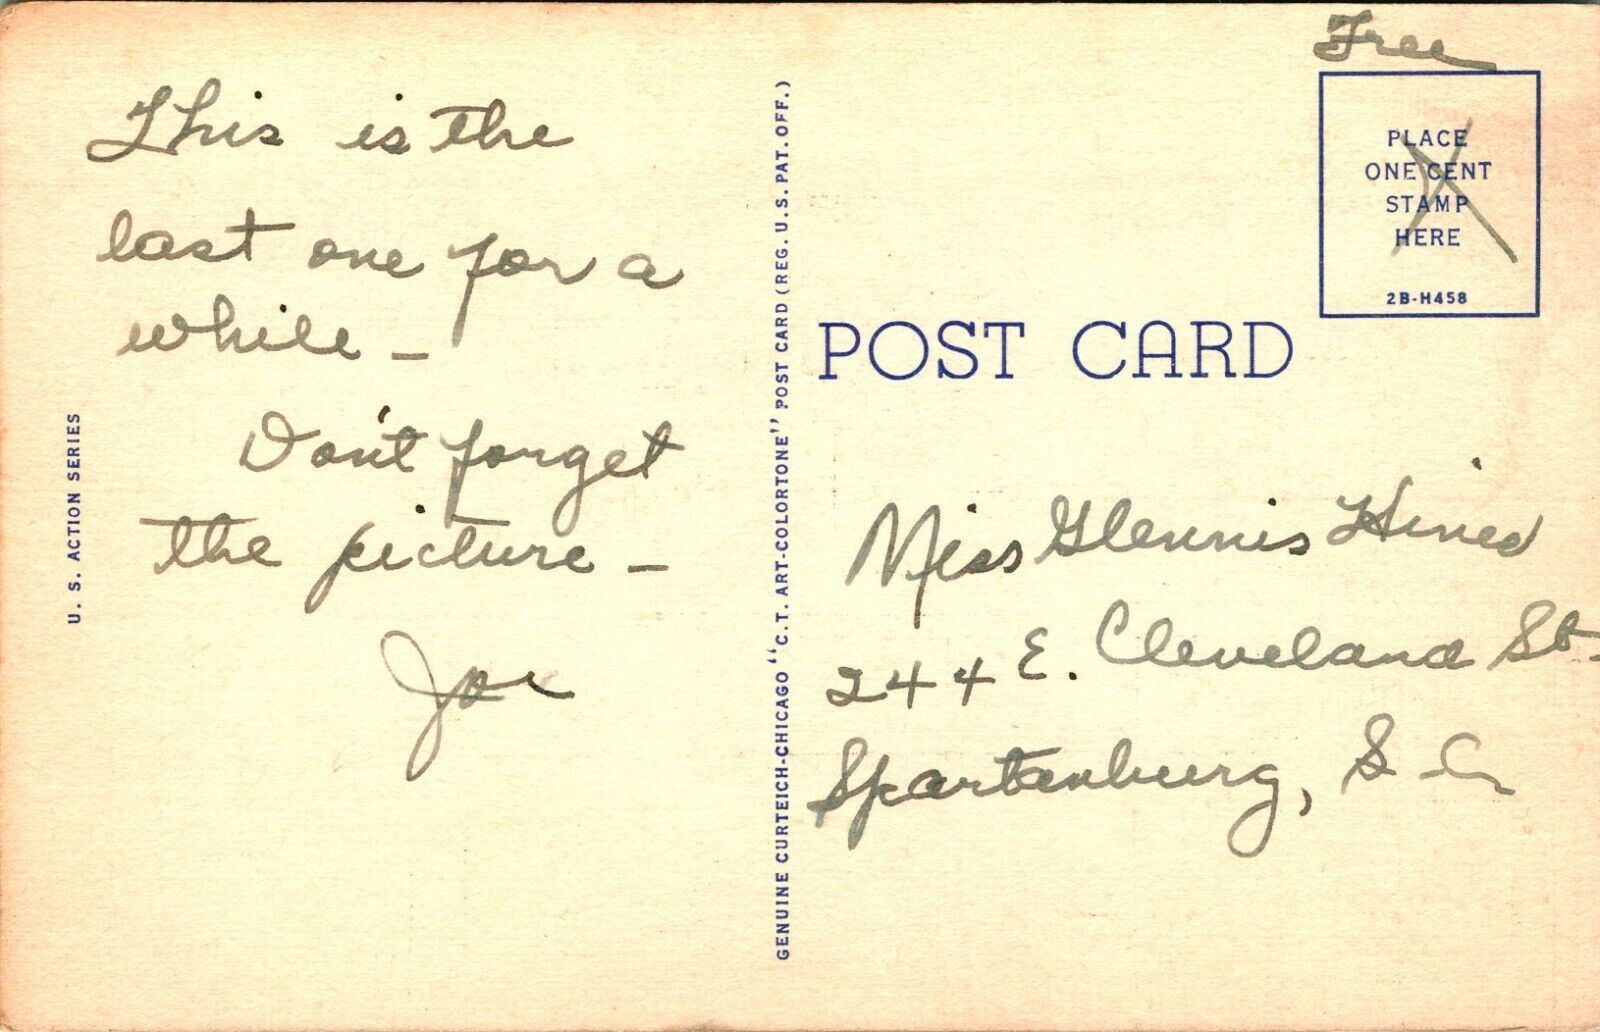 This is the
last one for a
while –
Don't forget
the picture –
Joe
U. S. ACTION SERIES
GENUINE CURTEICH-CHICAGO "C.T. ART-COLORTONE" POST CARD (REG. U.S. PAT. OFF.)
Free
PLACE
ONE CENT
STAMP
HERE
2B-H458
POST CARD
Miss Glennis Hines
244 E. Cleveland St.
Spartanburg, S-C